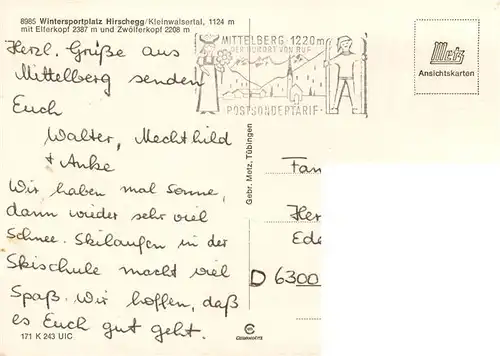 8985 Wintersportplatz Hirschegg/Kleinwalsertal, 1124 m
mit Elferkopf 2387 m und Zwölferkopf 2208 m
Herzl. Grüße aus
Mittelberg senden
Euch
Walter, Mechthild
+ Anke
Wir haben mal Sonne,
dann wieder sehr viel
Schnee. Skilaufen in der
Skischule macht viel
Spaß. Wir hoffen, daß
es Euch gut geht.
171 K 243 UIC
MITTELBERG · 1220m
DER KURORT VON RUF
POSTSONDERTARIF
Metz
Ansichtskarten
Gebr. Metz, Tübingen
Fam
Her
Ede
D 6300